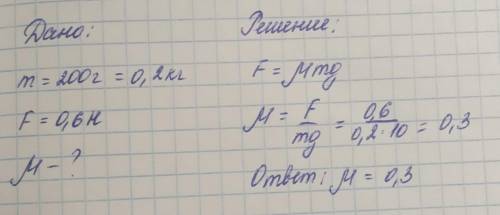 Дано:
m = 200г = 0,2кг
F = 0,6Н
μ - ?
Решение:
F = μmg
μ = F/mg = 0,6/0,2·10 = 0,3
Ответ: μ = 0,3